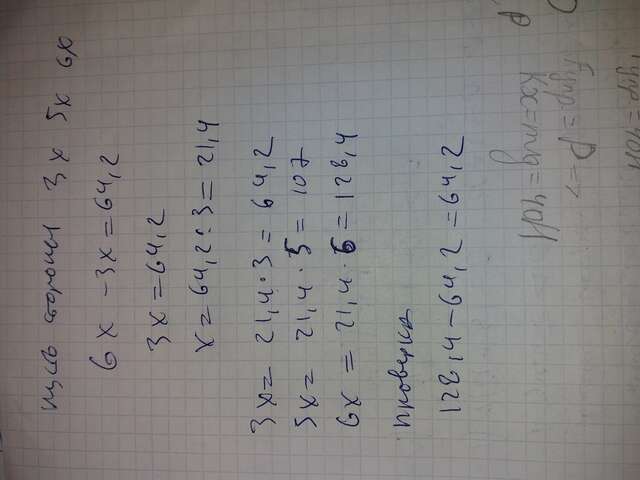 пусть стороны 3x 5x 6x
6x - 3x = 64,2
3x = 64,2
x = 64,2 : 3 = 21,4
3x = 21,4 · 3 = 64,2
5x = 21,4 · 5 = 107
6x = 21,4 · 6 = 128,4
проверка
128,4 - 64,2 = 64,2
kx = mg = 40Н
Fупр = P =>